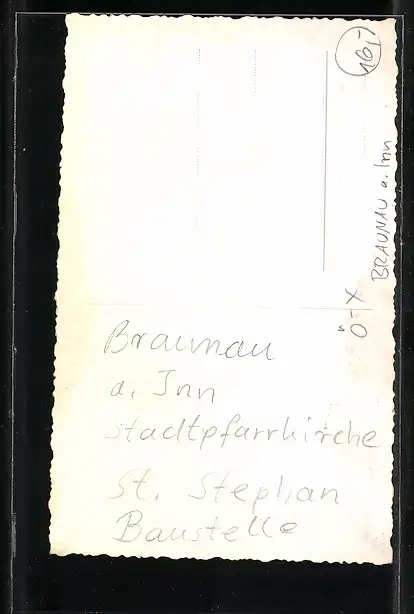 Braunau
a. Inn
Stadtpfarrkirche
St. Stephan
Baustelle
Ö-X
BRAUNAU a. Inn